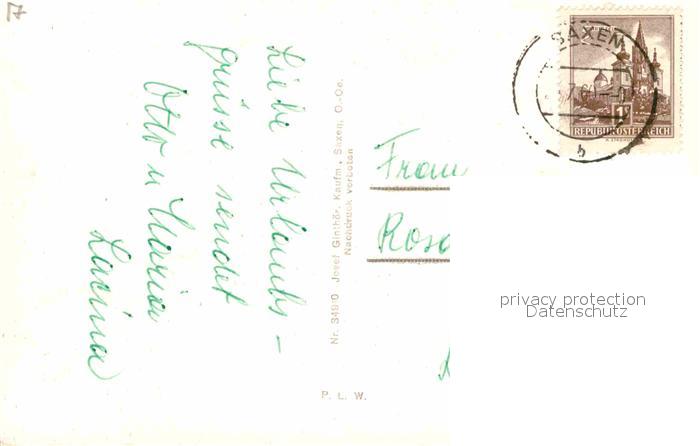 Liebe Urlaubs-
grüsse sendet
Otto u Maria
Lacina
Nr. 34910 Josef Ginthör, Kaufm., Saxen, O.-Oe.
Nachdruck verboten
P. L. W.
Frau
Rosa
SAXEN
b
1S
REPUBLIK ÖSTERREICH
privacy protection
Datenschutz